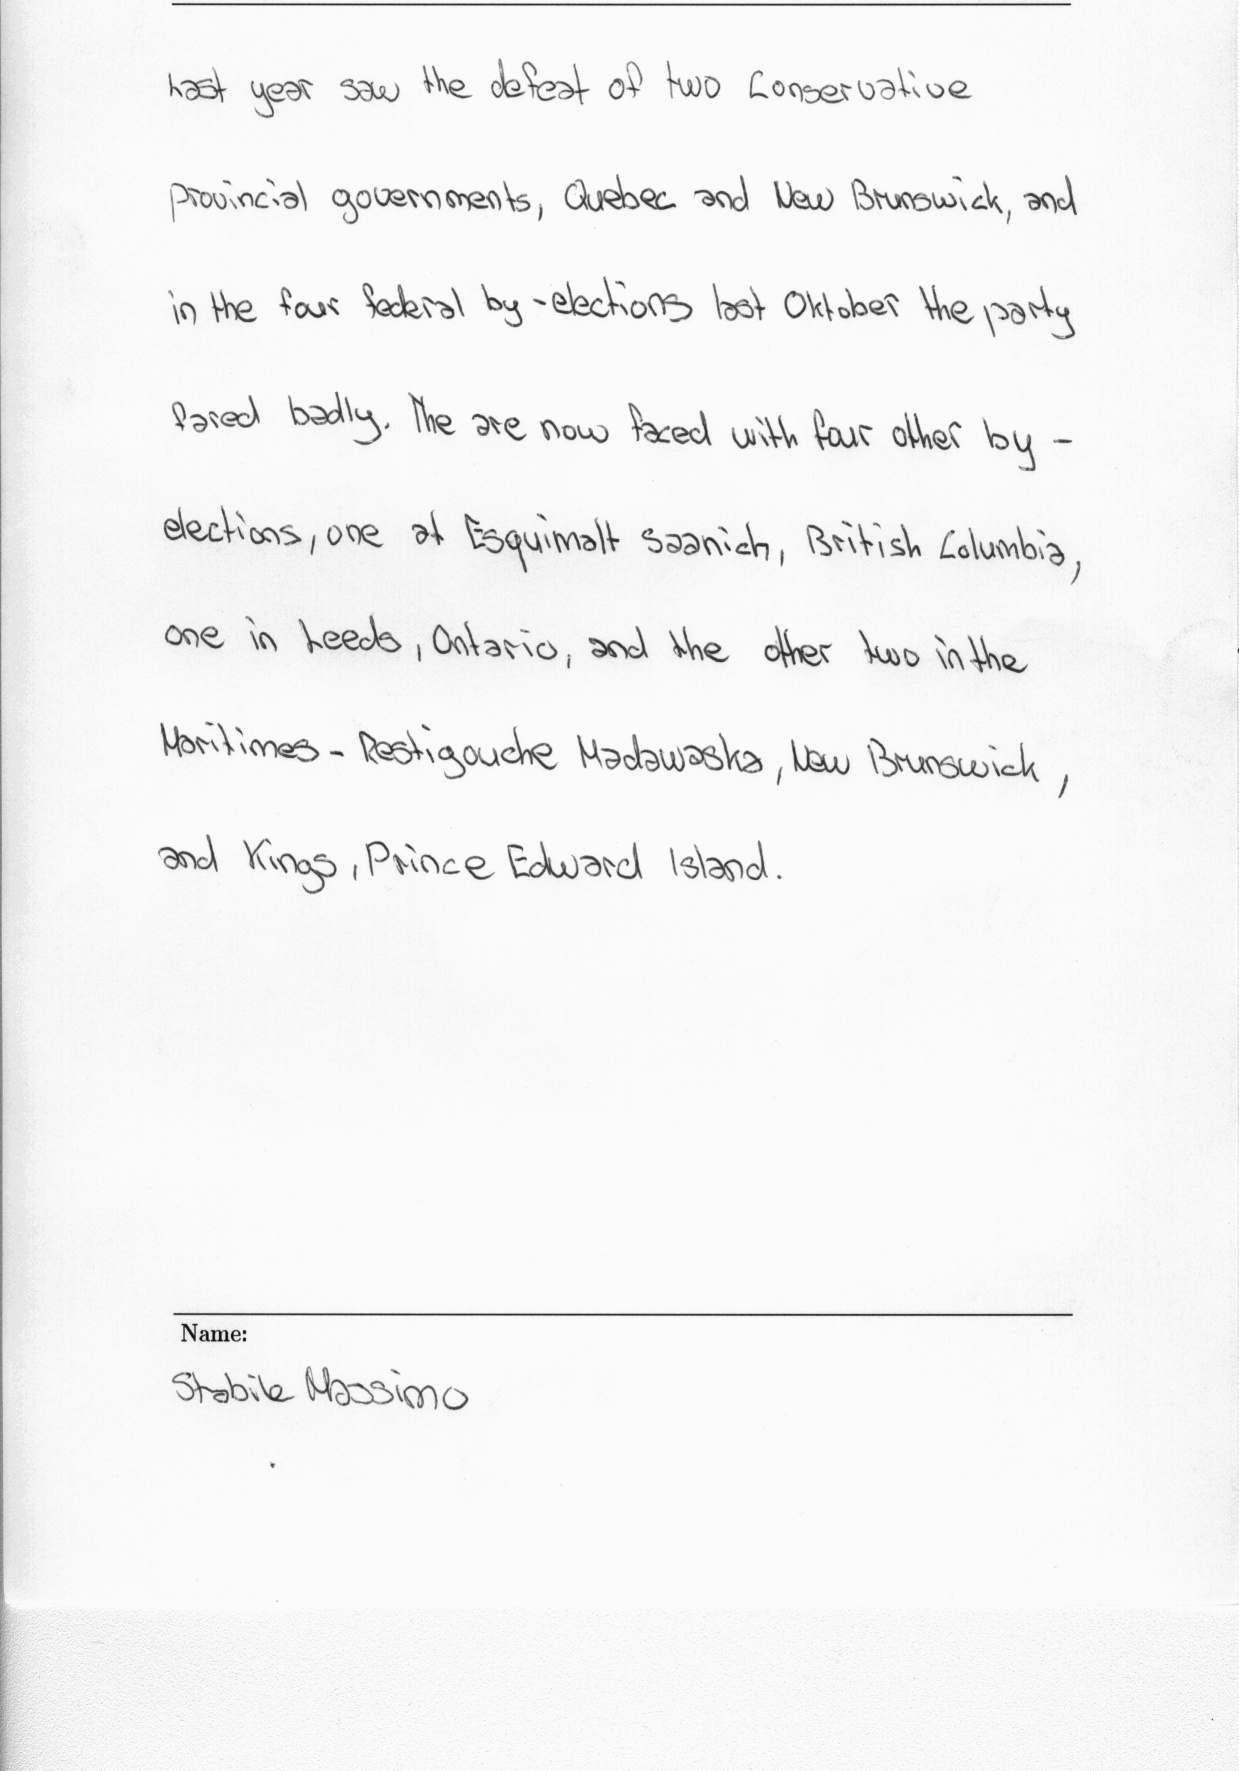 Last year saw the defeat of two Conservative
provincial governments, Quebec and New Brunswick, and
in the four federal by-elections last Oktober the party
fared badly. The are now faced with four other by-
elections, one at Esquimalt Saanich, British Columbia,
one in Leeds, Ontario, and the other two in the
Maritimes - Restigouche Madawaska, New Brunswick,
and Kings, Prince Edward Island.
Name:
Stabile Massimo